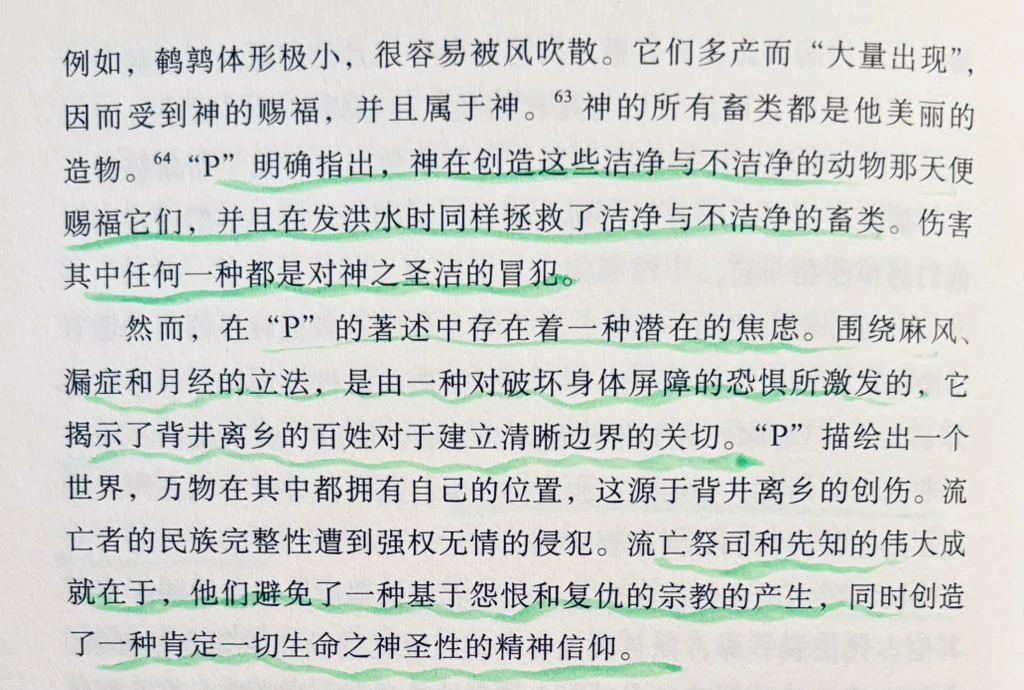 例如，鹌鹑体形极小，很容易被风吹散。它们多产而“大量出现”，
因而受到神的赐福，并且属于神。63 神的所有畜类都是他美丽的
造物。64 “P” 明确指出，神在创造这些洁净与不洁净的动物那天便
赐福它们，并且在发洪水时同样拯救了洁净与不洁净的畜类。伤害
其中任何一种都是对神之圣洁的冒犯。
然而，在 “P” 的著述中存在着一种潜在的焦虑。围绕麻风、
漏症和月经的立法，是由一种对破坏身体屏障的恐惧所激发的，它
揭示了背井离乡的百姓对于建立清晰边界的关切。“P” 描绘出一个
世界，万物在其中都拥有自己的位置，这源于背井离乡的创伤。流
亡者的民族完整性遭到强权无情的侵犯。流亡祭司和先知的伟大成
就在于，他们避免了一种基于怨恨和复仇的宗教的产生，同时创造
了一种肯定一切生命之神圣性的精神信仰。